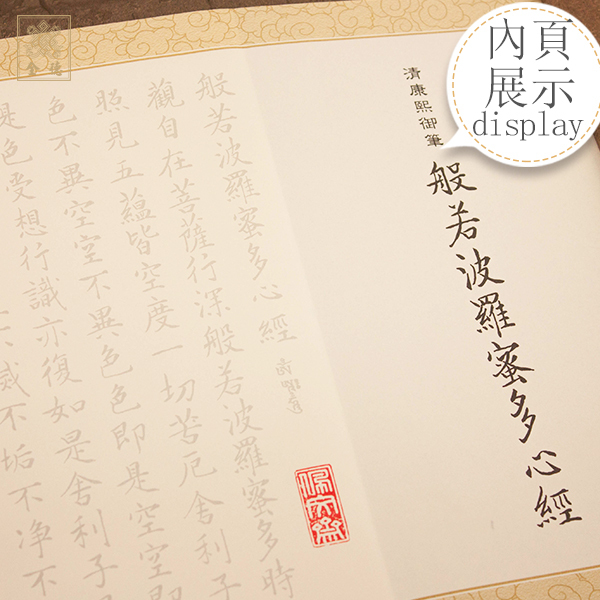 內頁
展示
display
清康熙御筆
般若波羅蜜多心經
般若波羅蜜多心經
觀自在菩薩行深般若波羅蜜多時
照見五蘊皆空度一切苦厄舍利子
色不異空空不異色色即是空空
是色受想行識亦復如是舍利子
不垢不净不